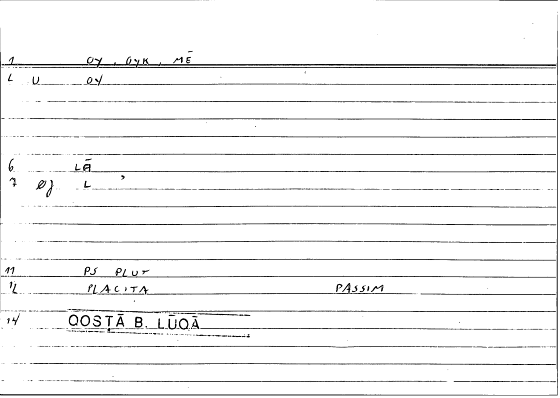 1 OY, OYK, MĒ
2 U OY
6 LĀ
7 øj L ʾ
11 PS PLUT
12 PLACITA PASSIM
14 QOSṬĀ B. LŪQĀ